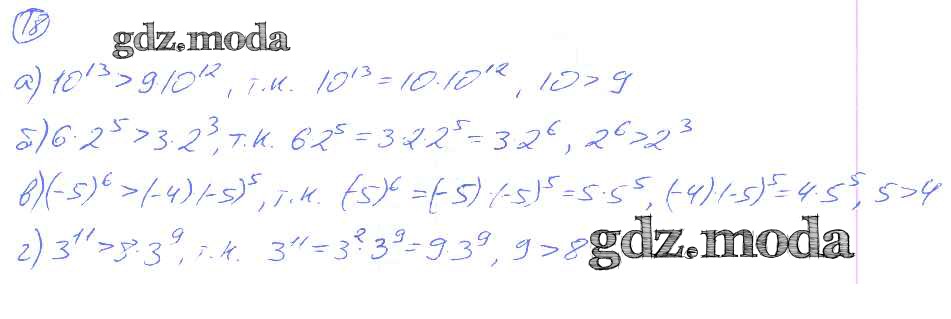 18
gdz.moda
а) 10¹³ > 9 10¹², т.к. 10¹³ = 10·10¹², 10 > 9
б) 6·2⁵ > 3·2³, т.к. 6 2⁵ = 3·2·2⁵ = 3 2⁶, 2⁶ > 2³
в) (-5)⁶ > (-4)(-5)⁵, т.к. (-5)⁶ = (-5)·(-5)⁵ = 5·5⁵, (-4)(-5)⁵ = 4·5⁵, 5 > 4
г) 3¹¹ > 8·3⁹, т.к. 3¹¹ = 3²·3⁹ = 9·3⁹, 9 > 8
gdz.moda